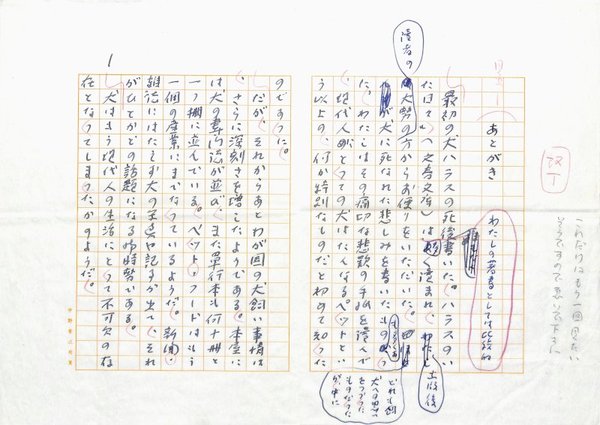 あとがき
改丁
わたしの著書としては比較的
最初の犬ハラスの死後書いた『ハラスのい
た日々』(文春文庫)は
よく読まれ、
出版後
読者の
大勢の方からお便りをいただいた。
が犬に死なれた悲しみを書いたもの
た。わたしはその痛切な悲歎の手紙を読んで
、現代人にとっての犬はたんなるペットとい
う以上の、何か特別なものだと初めて知った
のですった。
だが、それからあとわが国の犬飼い事情は
、さらに深刻さを増したようである。本屋に
は犬の専門誌が並び、また単行本も何十冊と
一つ棚に並んでいる。ペット・フードはもう
一個の産業にまでなっているようだ。新聞・
雑誌にはたえず犬の写真や記事が出、それ
がひとかどの話題になる御時勢である。
犬はもう現代人の生活にとって不可欠の存
在となってしまったかのようだ。
1
これだけはもう一回見たい
そうですので